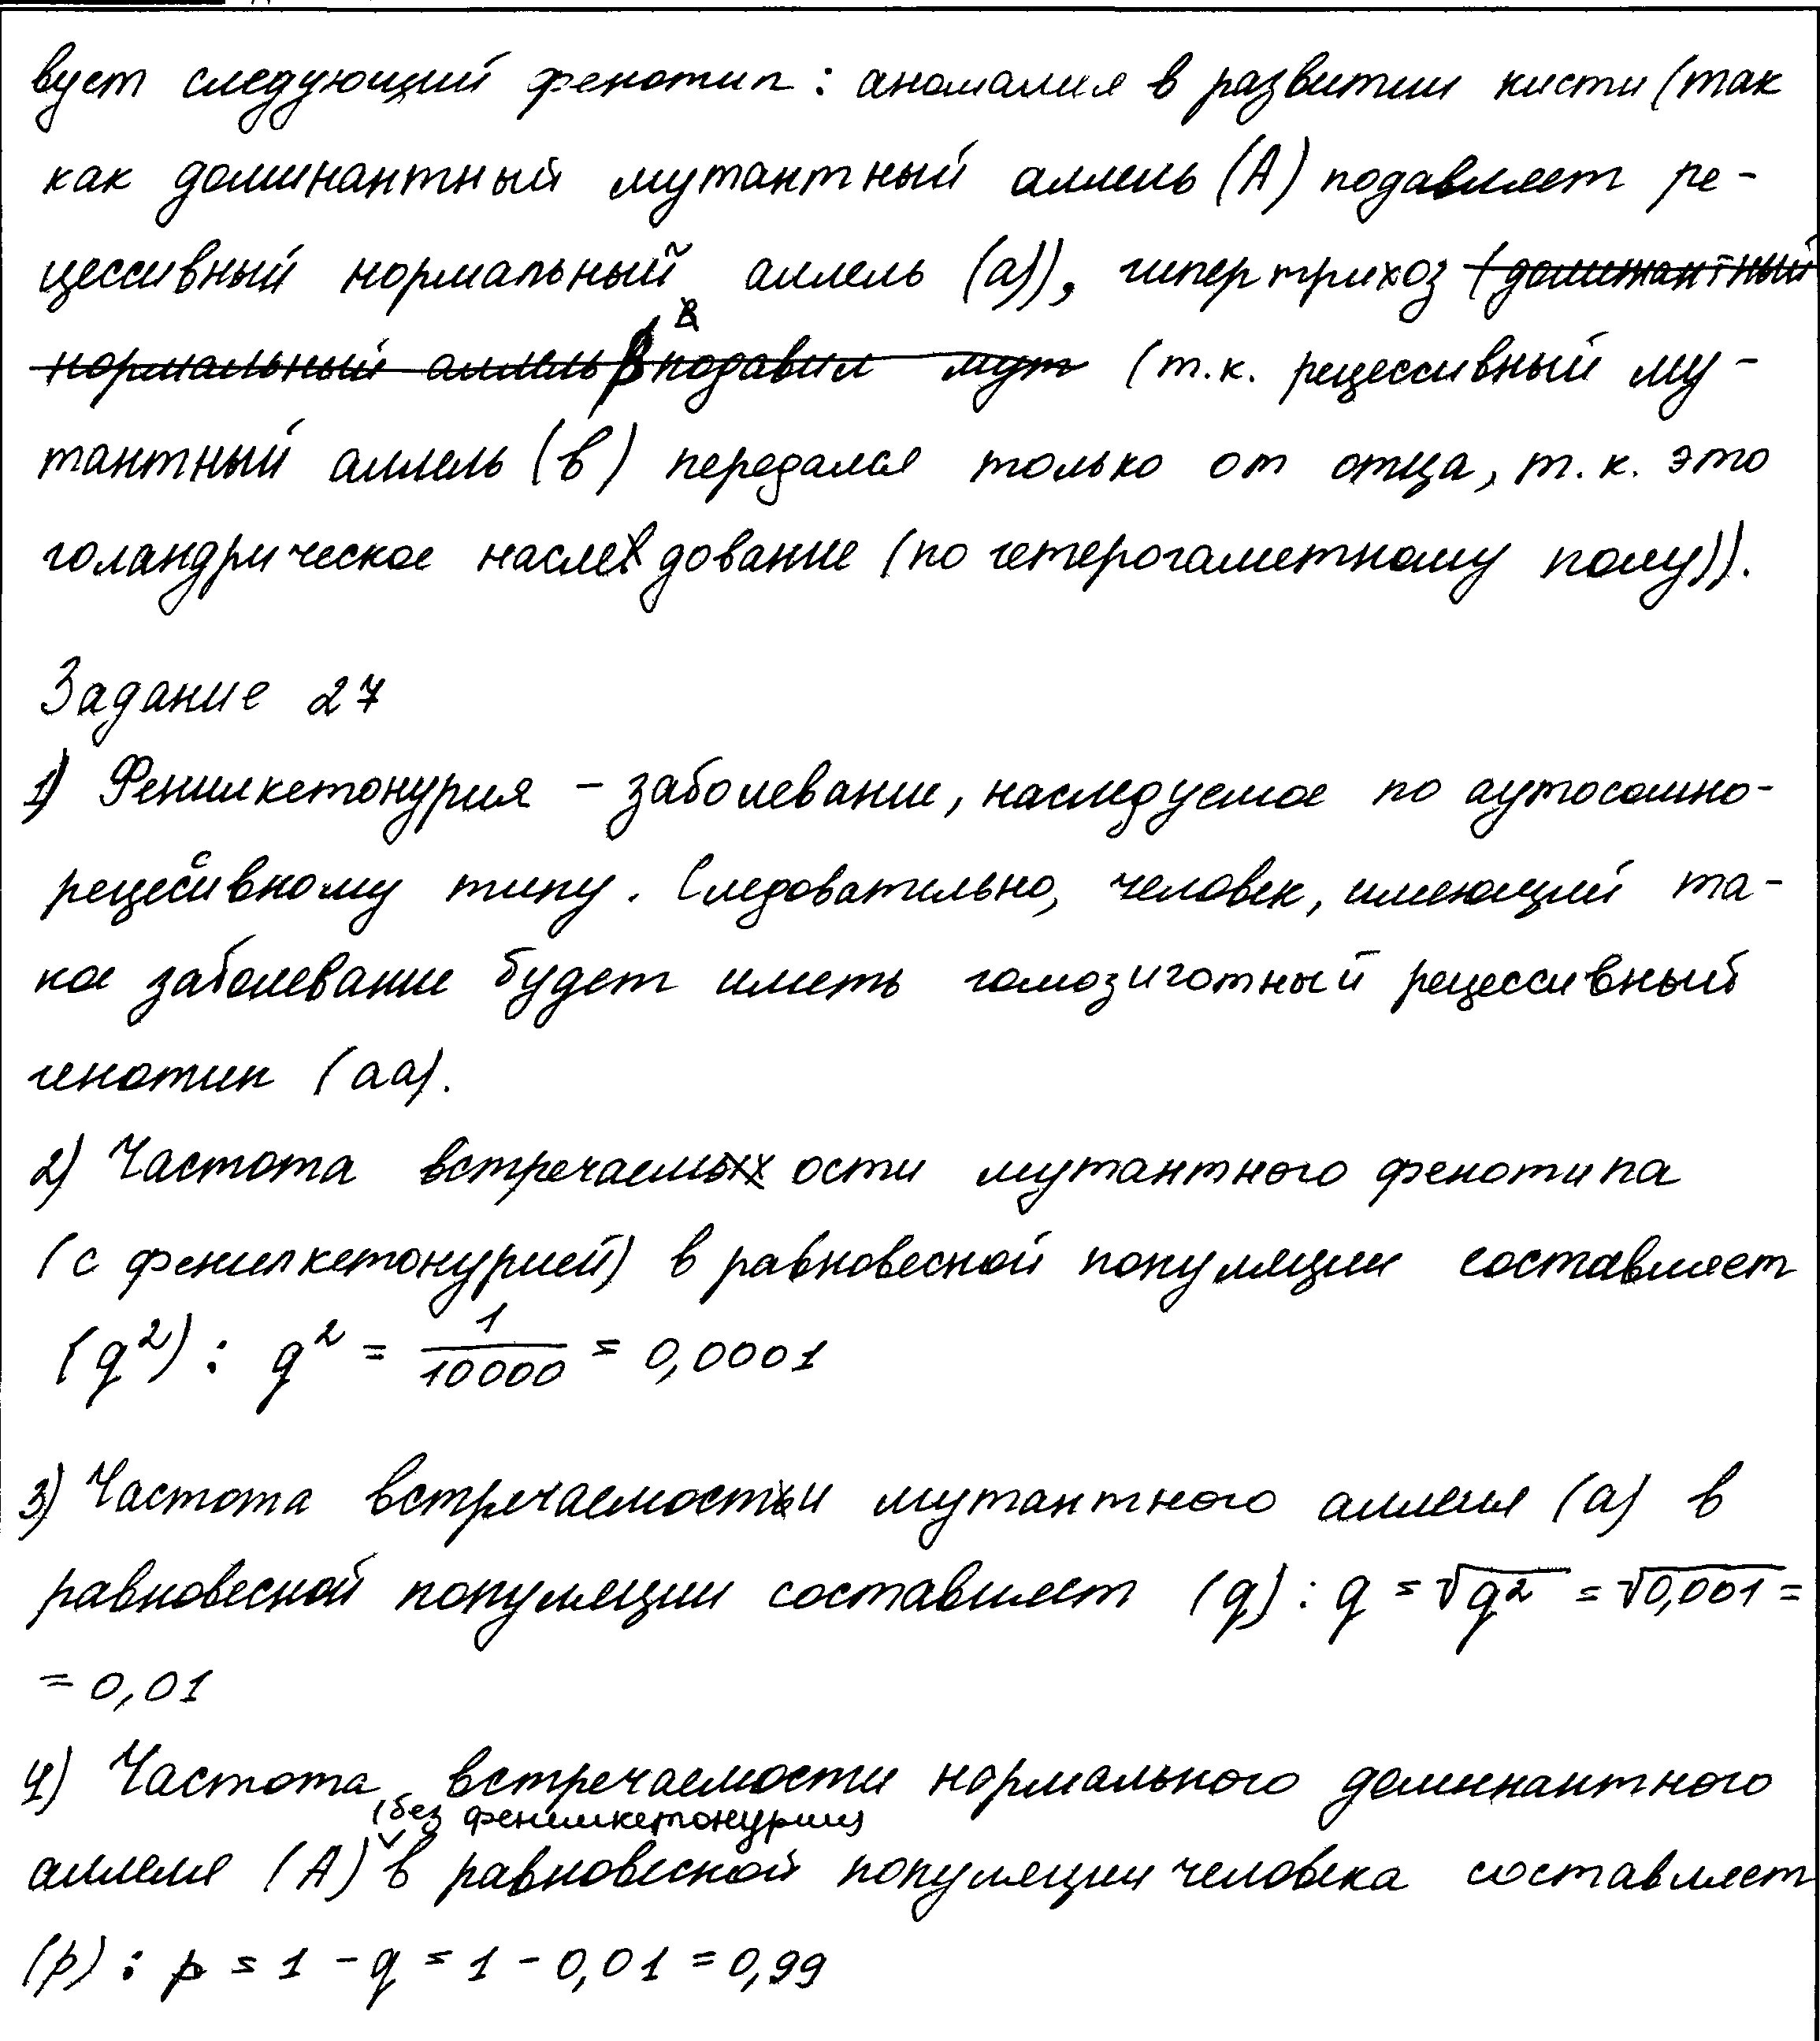 вует следующий фенотип: аномалия в развитии кисти (так
как доминантный мутантный аллель (А) подавляет ре-
цессивный нормальный аллель (а)), гипертрихоз (доминантный
нормальный аллель В подавил мут (т.к. рецессивный му-
тантный аллель (в) передался только от отца, т.к. это
голандрическое наследование (по гетерогаметному полу)).
Задание 27
1) Фенилкетонурия – заболевание, наследуемое по аутосомно-
рецессивному типу. Следовательно, человек, имеющий та-
кое заболевание будет иметь гомозиготный рецессивный
генотип (аа).
2) Частота встречаемости мутантного фенотипа
(с фенилкетонурией) в равновесной популяции составляет
(q²): q² = 1/10000 = 0,0001
3) Частота встречаемости мутантного аллеля (а) в
равновесной популяции составляет (q): q = √q² = √0,001 =
= 0,01
4) Частота встречаемости нормального доминантного
(без фенилкетонурии)
аллеля (А) в равновесной популяции человека составляет
(p): p = 1 - q = 1 - 0,01 = 0,99